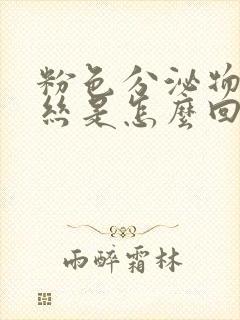 粉色分泌物
絲是怎麼回
雨醉霜林